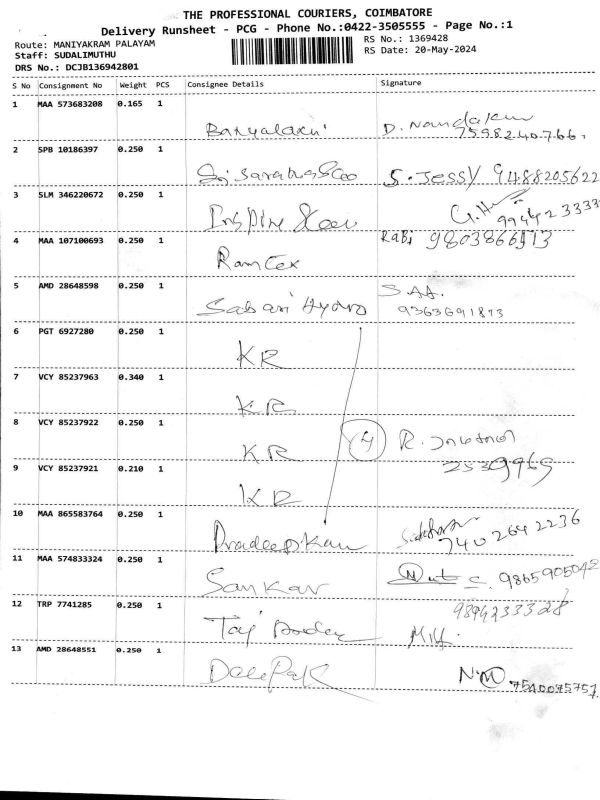 THE PROFESSIONAL COURIERS, COIMBATORE
Delivery Runsheet - PCG - Phone No.:0422-3505555 - Page No.:1
Route: MANIYAKRAM PALAYAM
RS No.: 1369428
Staff: SUDALIMUTHU
RS Date: 20-May-2024
DRS No.: DCJB136942801
S No Consignment No Weight PCS Consignee Details Signature
1 MAA 573683208 0.165 1 D. Nandakum
7598240766
2 SPB 10186397 0.250 1 S. Jessy 9488205622
3 SLM 346220672 0.250 1
4 MAA 107100693 0.250 1 Ramtex Rabi 9803866513
5 AMD 28648598 0.250 1 Sabari Hydro S.AA.
9363691813
6 PGT 6927280 0.250 1 KR
7 VCY 85237963 0.340 1 KR
8 VCY 85237922 0.250 1 KR 4 R.
2539969
9 VCY 85237921 0.210 1 KR
10 MAA 865583764 0.250 1 7402642236
11 MAA 574833324 0.250 1 Sankar 9865905042
12 TRP 7741285 0.250 1 Taj 9894233328
13 AMD 28648551 0.250 1 Deepak N.M 7540075757